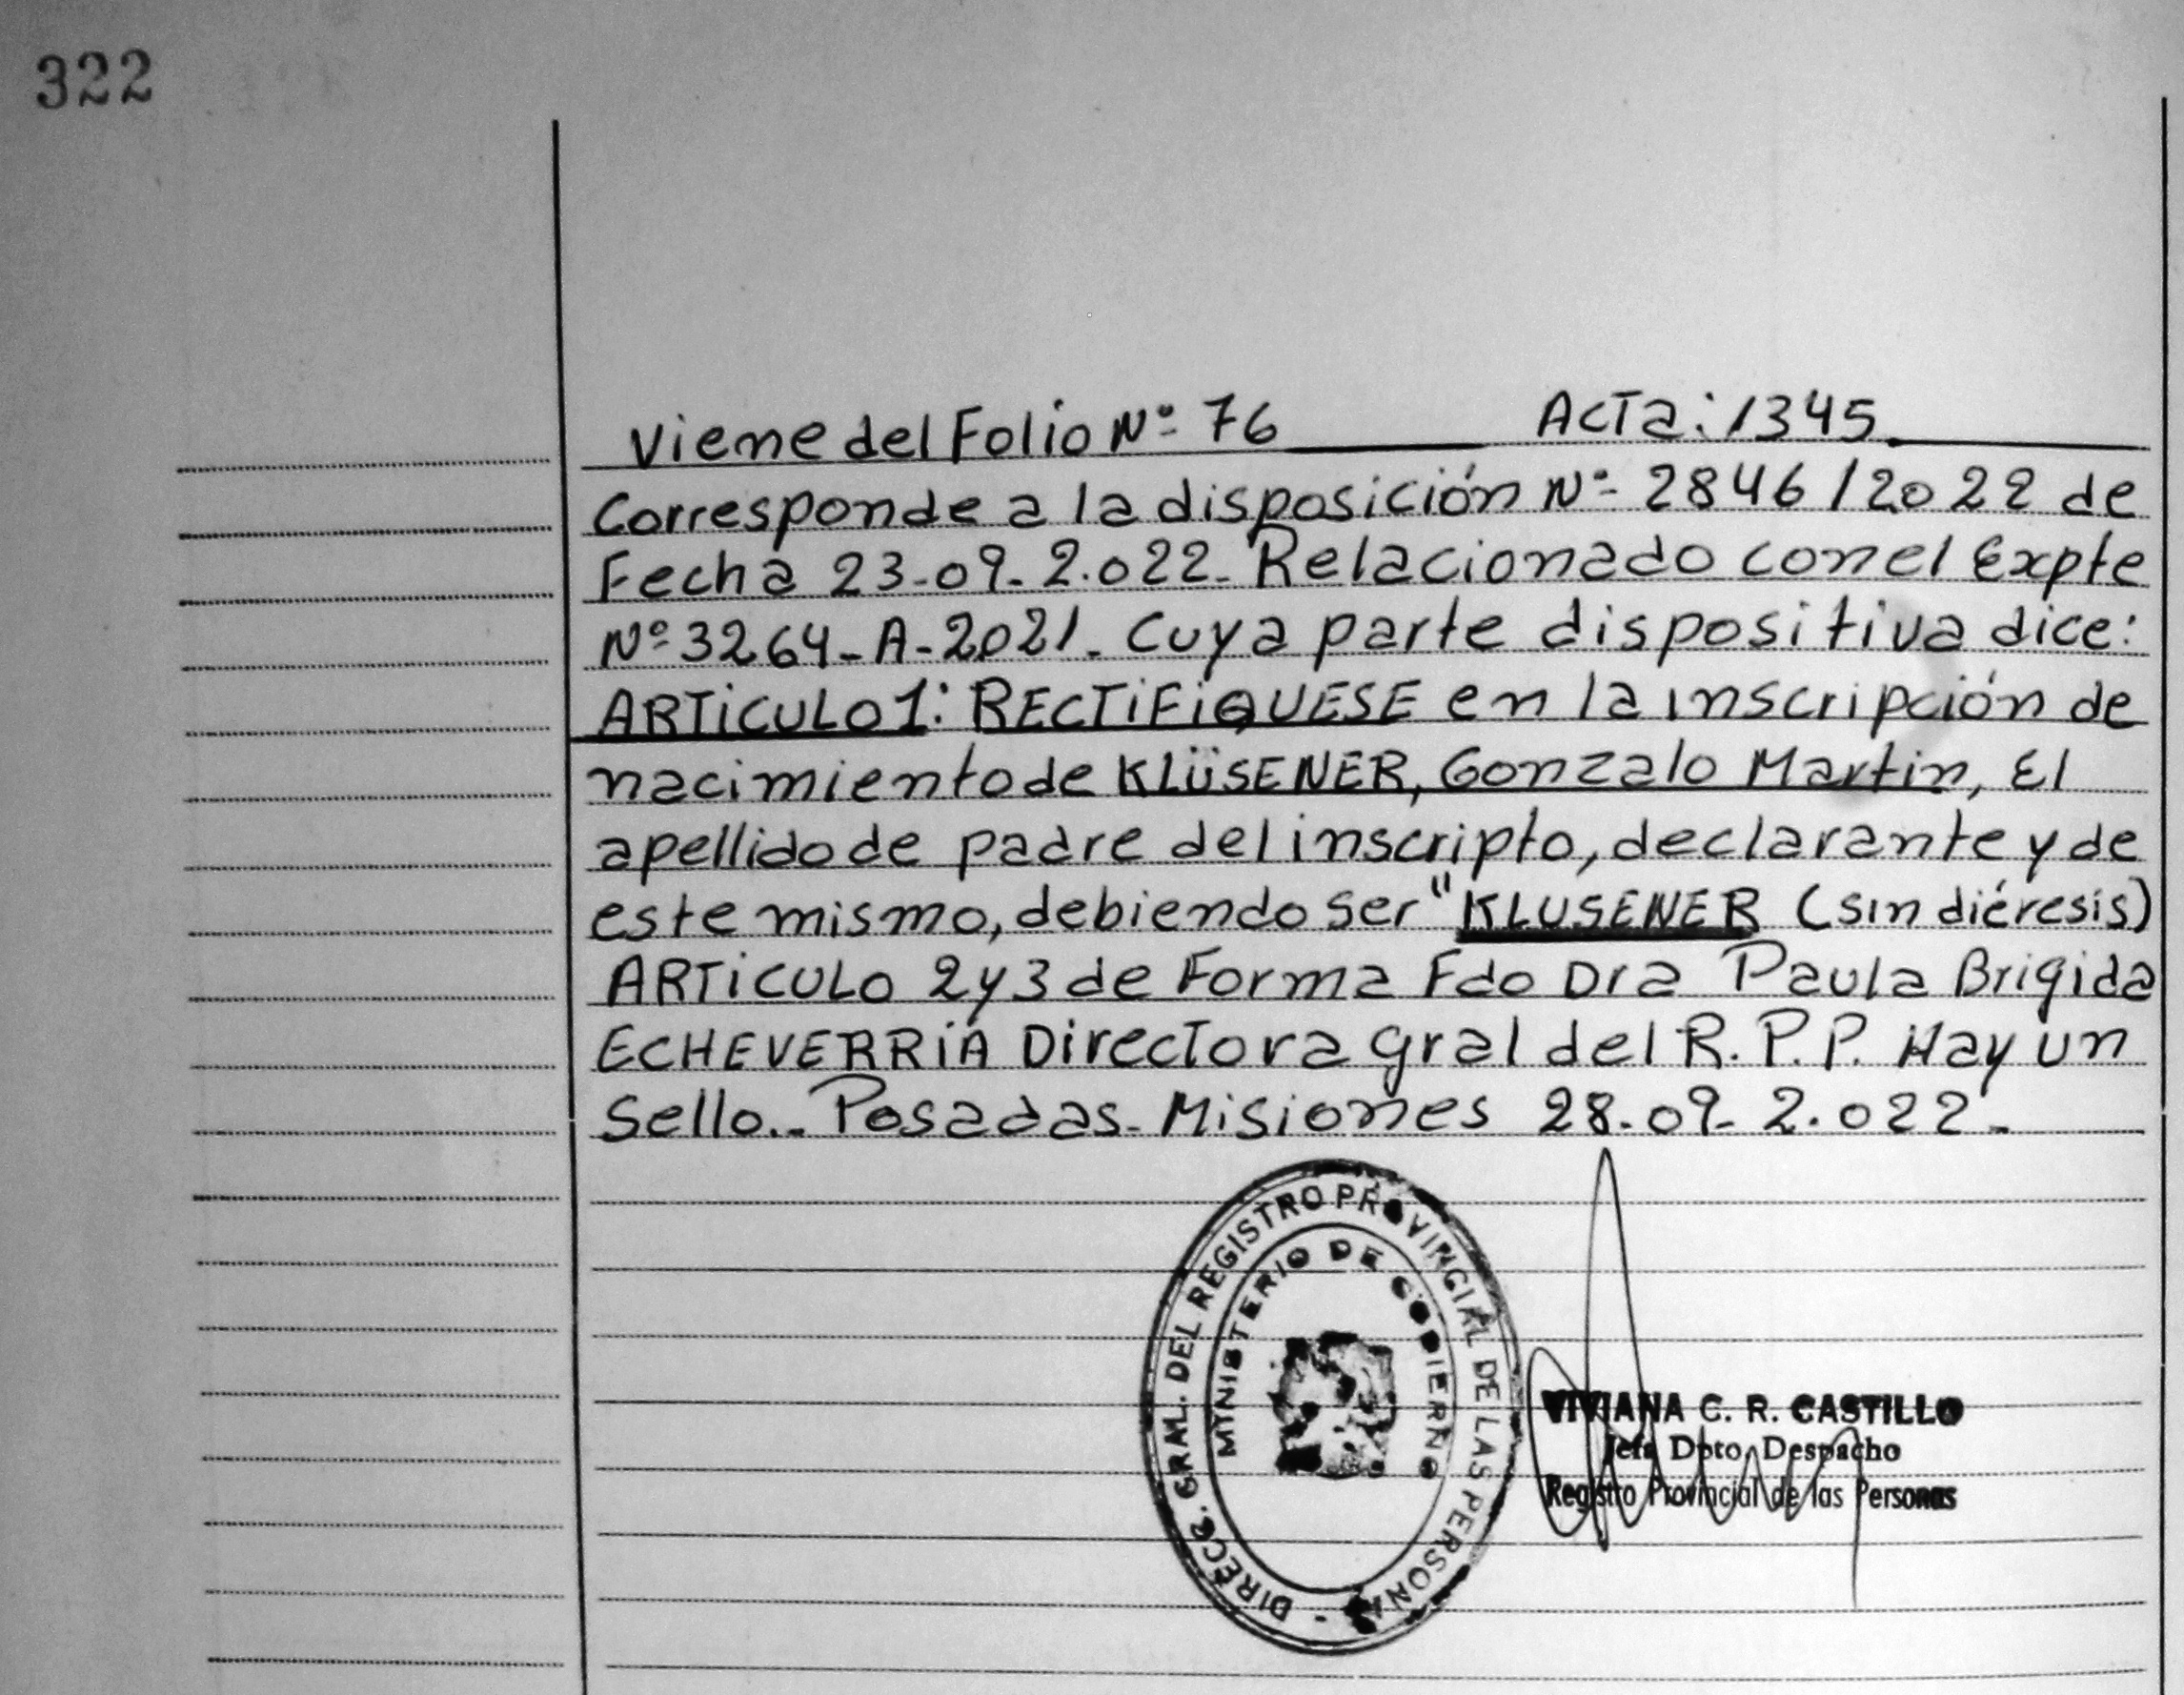 322
Viene del Folio Nº 76 Acta: 1345
Corresponde a la disposición Nº 2846/2022 de
Fecha 23-09-2.022. Relacionado con el Expte
Nº 3264-A-2021. Cuya parte dispositiva dice:
ARTICULO 1: RECTIFIQUESE en la inscripción de
nacimiento de KLÜSENER, Gonzalo Martin, El
apellido de padre del inscripto, declarante y de
este mismo, debiendo ser "KLUSENER (sin diéresis)
ARTICULO 2 y 3 de Forma Fdo Dra Paula Brigida
ECHEVERRÍA Directora gral del R.P.P. Hay un
Sello.- Posadas-Misiones 28-09-2.022.-
DIRECC. GRAL. DEL REGISTRO PROVINCIAL DE LAS PERSONAS -
MINISTERIO DE GOBIERNO
VIVIANA C. R. CASTILLO
Jefa Dpto. Despacho
Registro Provincial de las Personas